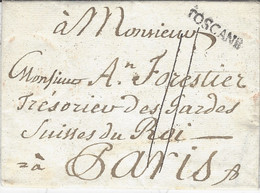 à Monsieur
TOSCANE
Monsieur An. Forestier
Trésorier des Gardes
Suisses du Roi
=à Paris